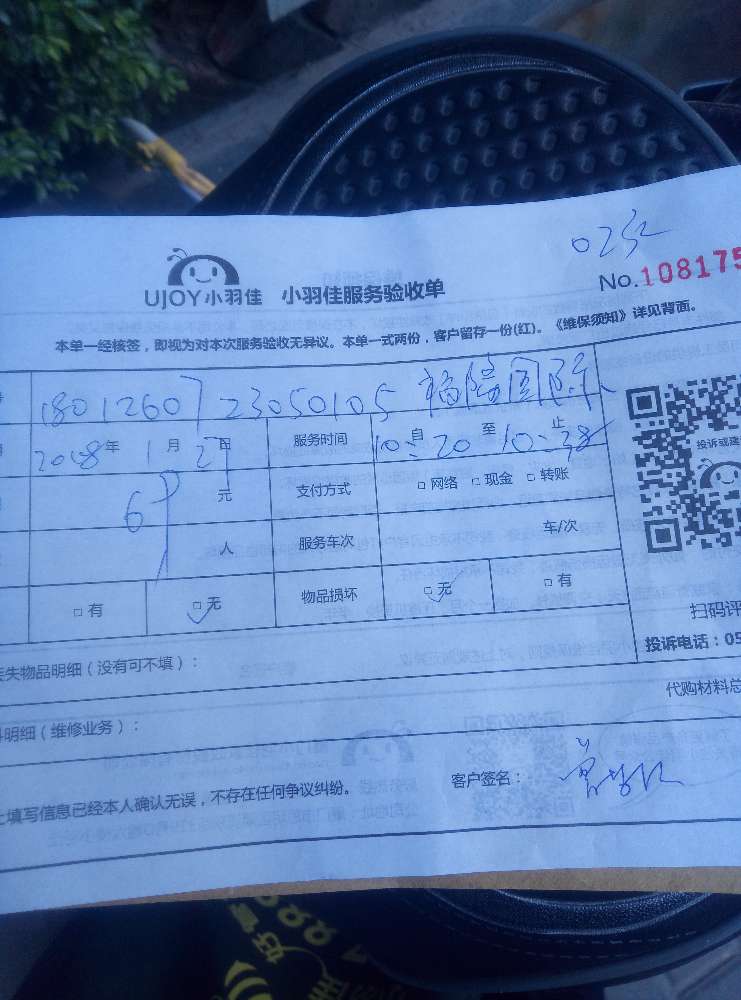 No.108175
UJOY小羽佳 小羽佳服务验收单
本单一经核签，即视为对本次服务验收无异议。本单一式两份，客户留存一份(红)。《维保须知》详见背面。
18012607 23050105 福隆国际
2018年 1月 27日 服务时间 10:20 自 至 10:38 止
元 支付方式 □ 网络 □ 现金 □ 转账
人 服务车次 车/次
□ 有 □ 无 物品损坏 □ 无 □ 有
投诉或建
扫码评
投诉电话：05
失物品明细（没有可不填）：
代购材料总
明细（维修业务）：
填写信息已经本人确认无误，不存在任何争议纠纷。 客户签名：